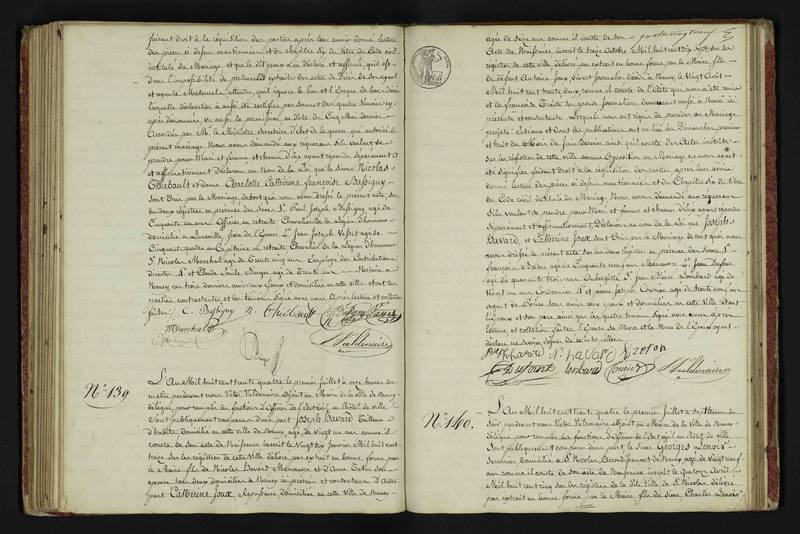 faisant droit à la réquisition des parties après leur avoir donné lecture
des pièces ci dessus mentionnées et du chapitre six du titre du Code civil
intitulé du Mariage et que le dit jour à eux déclaré et affirmé, qu'il est
dans l'impossibilité de produire les extraits des actes de Décès de ses ayeul
et ayeule Maternels attendu qu'il ignore le lieu et l'Epoque de leur décès
laquelle déclaration a aussi été certifiée par serment des quatre témoins cy
après dénommés, vu aussi la permission en date du Cinq Mai dernier
Accordée par M. le Ministre Secrétaire d'Etat de la guerre qui autorise le
présent mariage. Nous avons demandé aux requérans s'ils veulent se
prendre pour Mari et femme et chacun d'eux ayant répondu séparément et
et affirmativement Déclarons au Nom de la Loi que le Sieur Nicolas
Thiebault et Dame Charlotte Catherine françoise Bussigny
sont Unis par le Mariage de tout quoi nous avons dressé le présent acte, sur
les deux registres en présence des Sieurs Sr. Paul Joseph Bussigny, agé de
Cinquante un ans Officier en retraite Chevalier de la Légion d'honneur
domicilié à Lunéville, frère de l'Epouse Sr. Jean Joseph agé de
Cinquante quatre ans Capitaine en retraite Chevalier de la Légion d'honneur
Sr. Nicolas Marchal agé de trente cinq ans Employé des Contributions
directes, Sr. et Claude Emile agé de trente ans Notaire à
Nancy ces trois derniers amis aux Epoux et domiciliés en cette ville, et ont les
parties contractantes et les témoins signé avec nous après lecture et collation
faites. C. Bussigny N. Thiebault
Marchal
Valdenaire
No. 139
L'An Mil huit cent trente quatre le premier juillet à onze heures du
matin pardevant nous Victor Valdenaire adjoint au Maire de la ville de Nancy
délégué pour remplir les fonctions d'Officier de l'Etat civil en l'hôtel de ville
Sont publiquement comparus d'une part Joseph Bavard Tailleur
d'habits domicilié en cette ville de Nancy, agé de vingt un ans comme il
conste de son acte de Naissance inscrit le vingt dix janvier Mil huit cent
treize sur les registres de cette ville délivré par extrait en bonne forme par
le Maire fils de Nicolas Bavard Menuisier et d'Anne son
épouse tous deux domiciliés à Nancy ici présens et consentans D'autre
part Catherine Joux Repasseuse domiciliée en cette ville de Nancy
quatre vingt neuf
agée de seize ans comme il conste de son
Acte de Naissance inscrit le treize Octobre Mil huit cent dix sept, sur les
registres de cette ville délivré par extrait en bonne forme par le Maire, fille
de défunt Antoine Joux, vivant journalier décédé à Nancy le Vingt Août
Mil huit cent trente deux comme il conste de l'Acte qui nous a été remis
et de françoise son épouse journalière demeurant aussi à Nancy ici
présente et consentante. Lesquels nous ont requis de procéder au Mariage
projeté entr'eux et dont les publications ont eu lieu les Dimanches premier
et huit du Mois de juin dernier ainsi qu'il conste des Actes inscrits
sur les registres de cette ville aucune Opposition au Mariage ne nous ayant
été signifiée faisant droit à la réquisition des parties après leur avoir
donné lecture des pièces ci dessus mentionnées et du Chapitre six du titre
du Code civil intitulé du Mariage. Nous avons demandé aux requérans
s'ils veulent se prendre pour Mari et femme et chacun d'eux ayant répondu
séparément et affirmativement Déclarons au nom de la Loi que Joseph
Bavard, et Catherine Joux sont Unis par le Mariage de tout quoi nous
avons dressé le présent acte sur les deux registres en présence des Sieurs Sr.
françois agé de Cinquante neuf ans Menuisier Sr. Jean Dufour
agé de quarante trois ans Aubergiste Sr. Jean Pierre Lombard agé de
vingt un ans Cordonnier Sr. et pierre Joseph Courier agé de trente ans
agent de Police tous amis aux époux et domiciliés en cette ville et ont
l'Epoux et son père ainsi que les quatre témoins signé avec nous après
lecture et collation faites l'Epouse sa Mère et la Mère de l'Epoux ayant
déclaré ne savoir signer de ce interpellées
Bavard
Dufour lombard Courier Valdenaire
No. 140.
L'An Mil huit cent trente quatre le premier juillet à sept heures du
soir pardevant nous Victor Valdenaire adjoint au Maire de la Ville de Nancy
délégué pour remplir les fonctions d'Officier de l'Etat civil en l'hôtel de ville
Sont publiquement comparus d'une part le Sieur Georges Lenoir
Serrurier domicilié à St. Nicolas Arrondissement de Nancy agé de vingt neuf
ans comme il conste de son acte de Naissance inscrit le quatorze Avril
Mil huit cent cinq sur les registres de la dite Ville de St. Nicolas délivré
par extrait en bonne forme par le Maire fils de Sieur Charles Lenoir